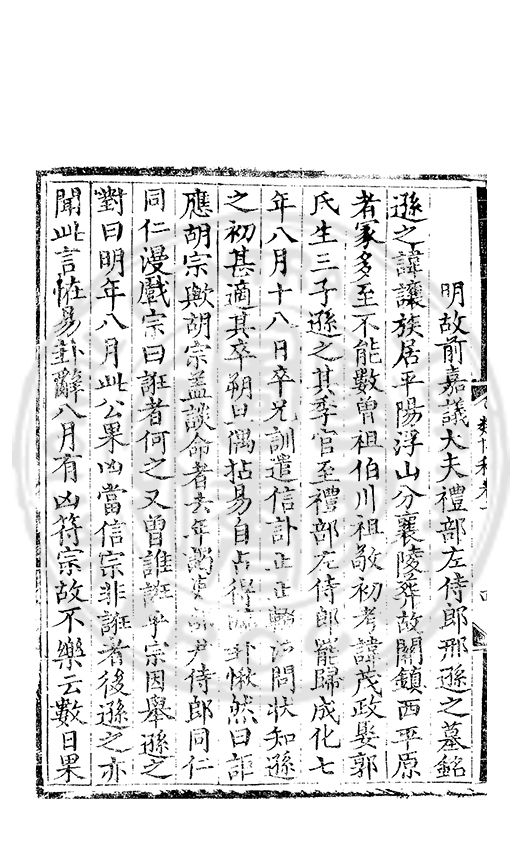 明故前嘉議大夫禮部左侍郎邢遜之墓銘
遜之諱讓族居平陽浮山分襄陵葬故關鎮西平原
者冢多至不能數曾祖伯川祖敬初考諱茂政娶郭
氏生三子遜之其季官至禮部左侍郎罷歸成化七
年八月十八日卒兄訓遣信訃正正輟 問狀知遜
之初甚適其卒朔旦偶拈易自占得臨卦愀然曰詎
應胡宗歟胡宗蓋談命者去年 尹侍郎同仁
同仁漫戲宗曰誑者何之又曾誰誑乎宗因舉遜之
對曰明年八月此公果凶當信宗非誑者後遜之亦
聞此言恠易卦辭八月有凶符宗故不樂云數日果